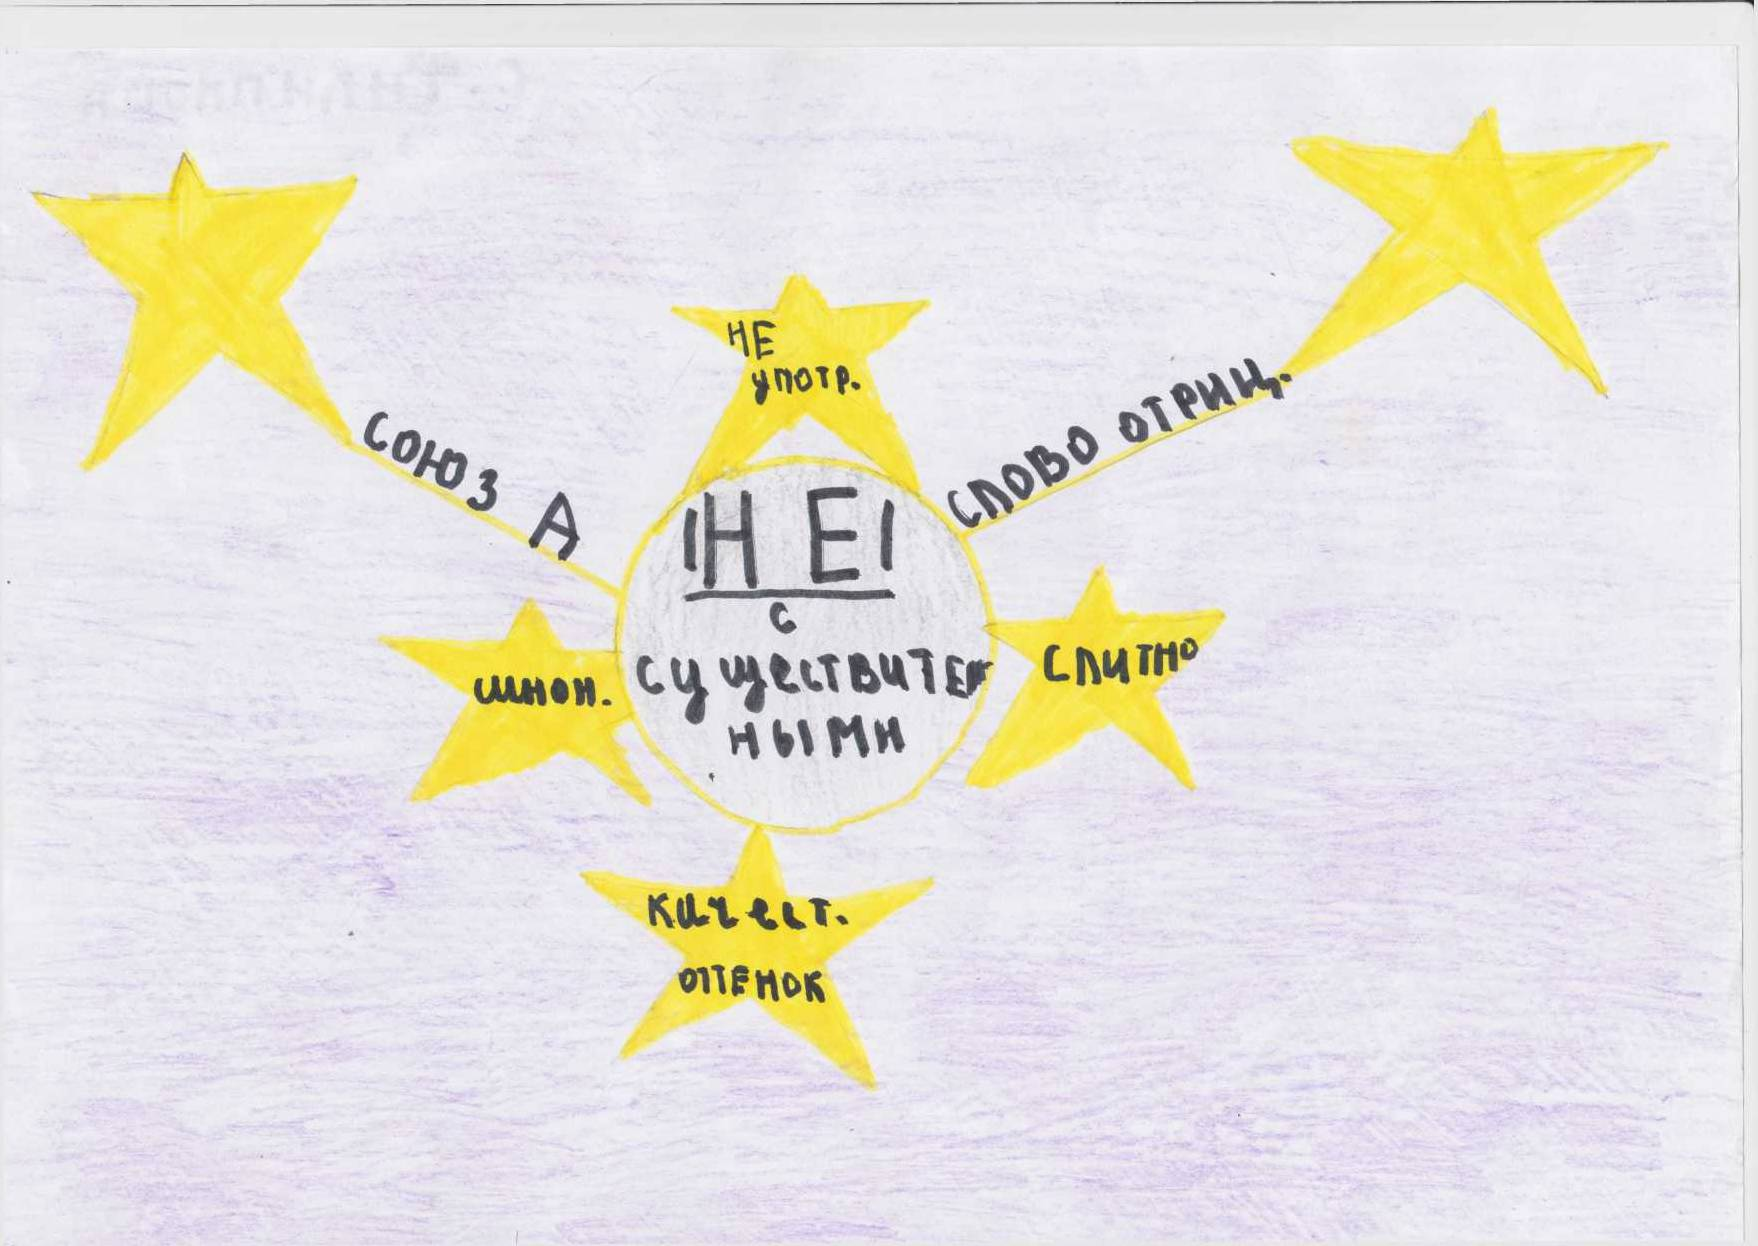 НЕ
употр.
СОЮЗ А
СЛОВО ОТРИЦ.
НЕ
с
существитель
ными
синон.
слитно
качест.
оттенок